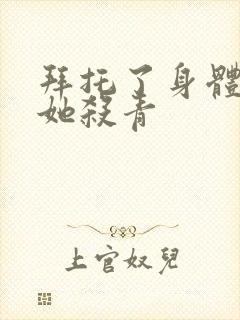 拜托了身體
她殺青
上官奴兒